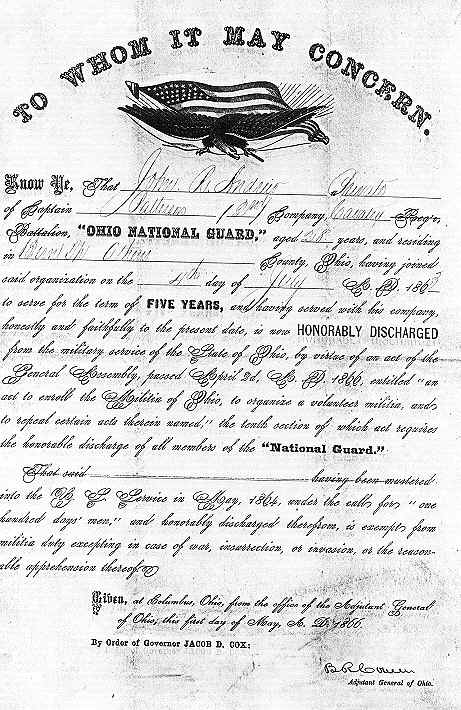 TO WHOM IT MAY CONCERN.
Know Ye, That John R. Private
of Captain Company, Reg't,
Battalion, "OHIO NATIONAL GUARD," aged 28 years, and residing
in County, Ohio, having joined
said organization on the 4th day of July A. D. 1863
to serve for the term of FIVE YEARS, and having served with his company,
honestly and faithfully to the present date, is now HONORABLY DISCHARGED
from the military service of the State of Ohio, by virtue of an act of the
General Assembly, passed April 2d, A. D. 1866, entitled "an
act to enroll the Militia of Ohio, to organize a volunteer militia, and
to repeal certain acts therein named," the tenth section of which act requires
the honorable discharge of all members of the "National Guard."
That said having been mustered
into the U. S. Service in May, 1864, under the call for "one
hundred days' men," and honorably discharged therefrom, is exempt from
militia duty excepting in case of war, insurrection, or invasion, or the reason-
able apprehension thereof.
Given, at Columbus, Ohio, from the office of the Adjutant General
of Ohio, this first day of May, A. D. 1866.
By Order of Governor JACOB D. COX:
B R Cowen
Adjutant General of Ohio.